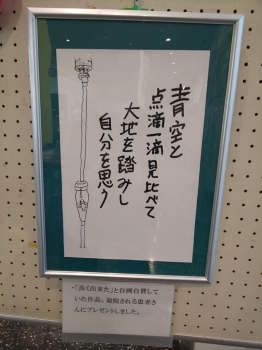 青空と
点滴一滴見比べて
大地を踏みし
自分を思う
・「良く出来た」と自画自賛して
いた作品。退院される患者さ
んにプレゼントしました。